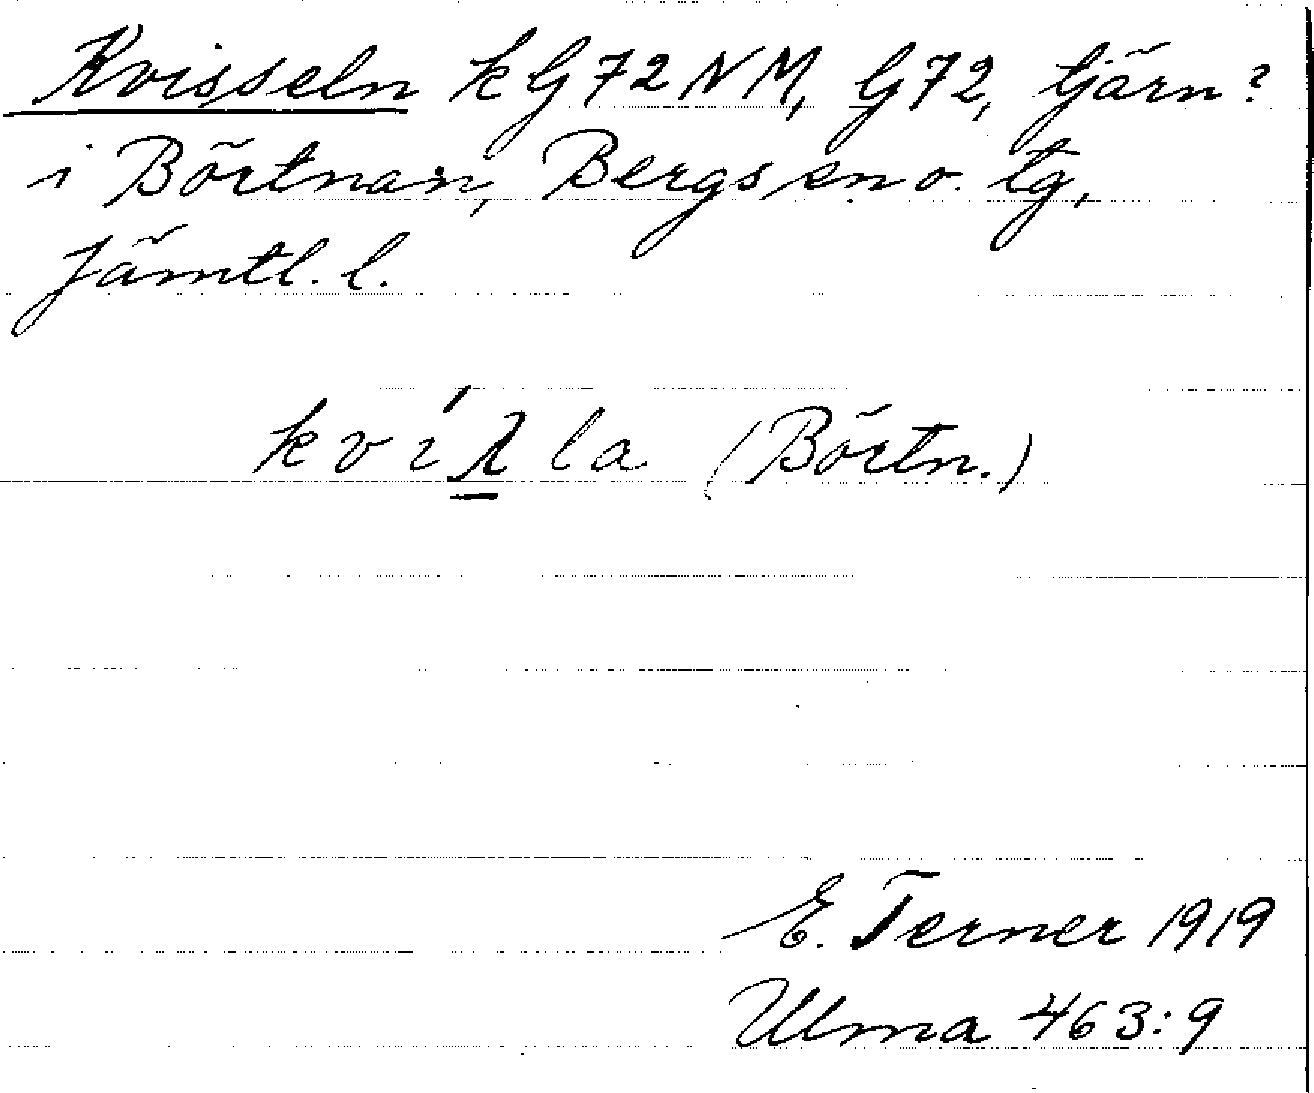 Kvisseln kG72NM, G72, tjärn?
i Börtnan, Bergs sn o. tg,
Jämtl. l.
la (Börtn.)
E. Terner 1919
Ulma 463:9